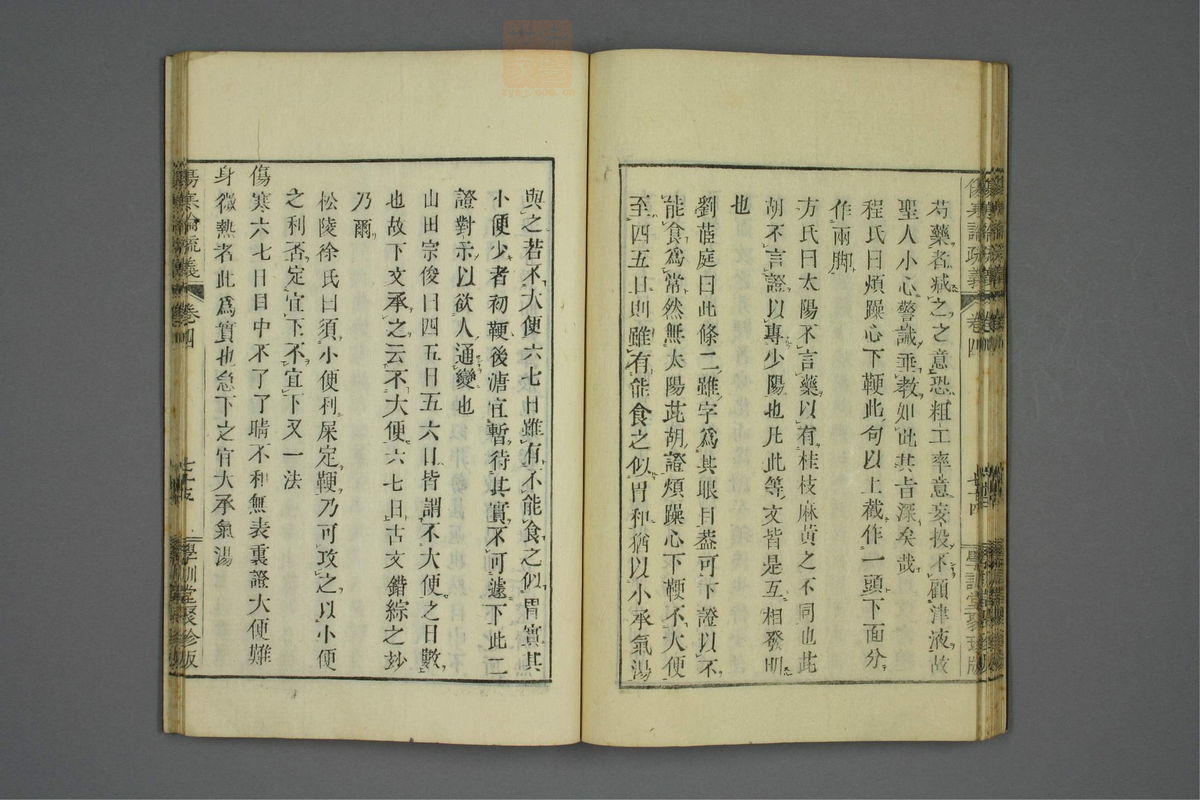 芍藥者減之之意恐粗工率意妄投不顧津液故
聖人小心警誡垂教如此其旨深矣哉
程氏曰煩躁心下鞕此句以上截作一頭下面分
作兩脚
方氏曰太陽不言藥以有桂枝麻黃之不同也此
胡不言證以專少陽也凡此等文皆是互相發明
也
劉茝庭曰此條二雖字爲其眼目蓋可下證以不
能食爲常然無太陽茈胡證煩躁心下鞕不大便
至四五日則雖有能食之似胃和猶以小承氣湯
與之若不大便六七日雖有不能食之似胃實其
小便少者初鞕後溏宜暫待其實不可遽下此二
證對示以欲人通變也
山田宗俊曰四五日五六日皆謂不大便之日數
也故下文承之云不大便六七日古文錯綜之妙
乃爾
松陵徐氏曰須小便利屎定鞕乃可攻之以小便
之利否定宜下不宜下又一法
傷寒六七日目中不了了睛不和無表裏證大便難
身微熱者此爲實也急下之宜大承氣湯
傷寒論疏義 卷四 七十五 學訓堂聚珍版
傷寒論疏義 卷四 七十四 學訓堂聚珍版